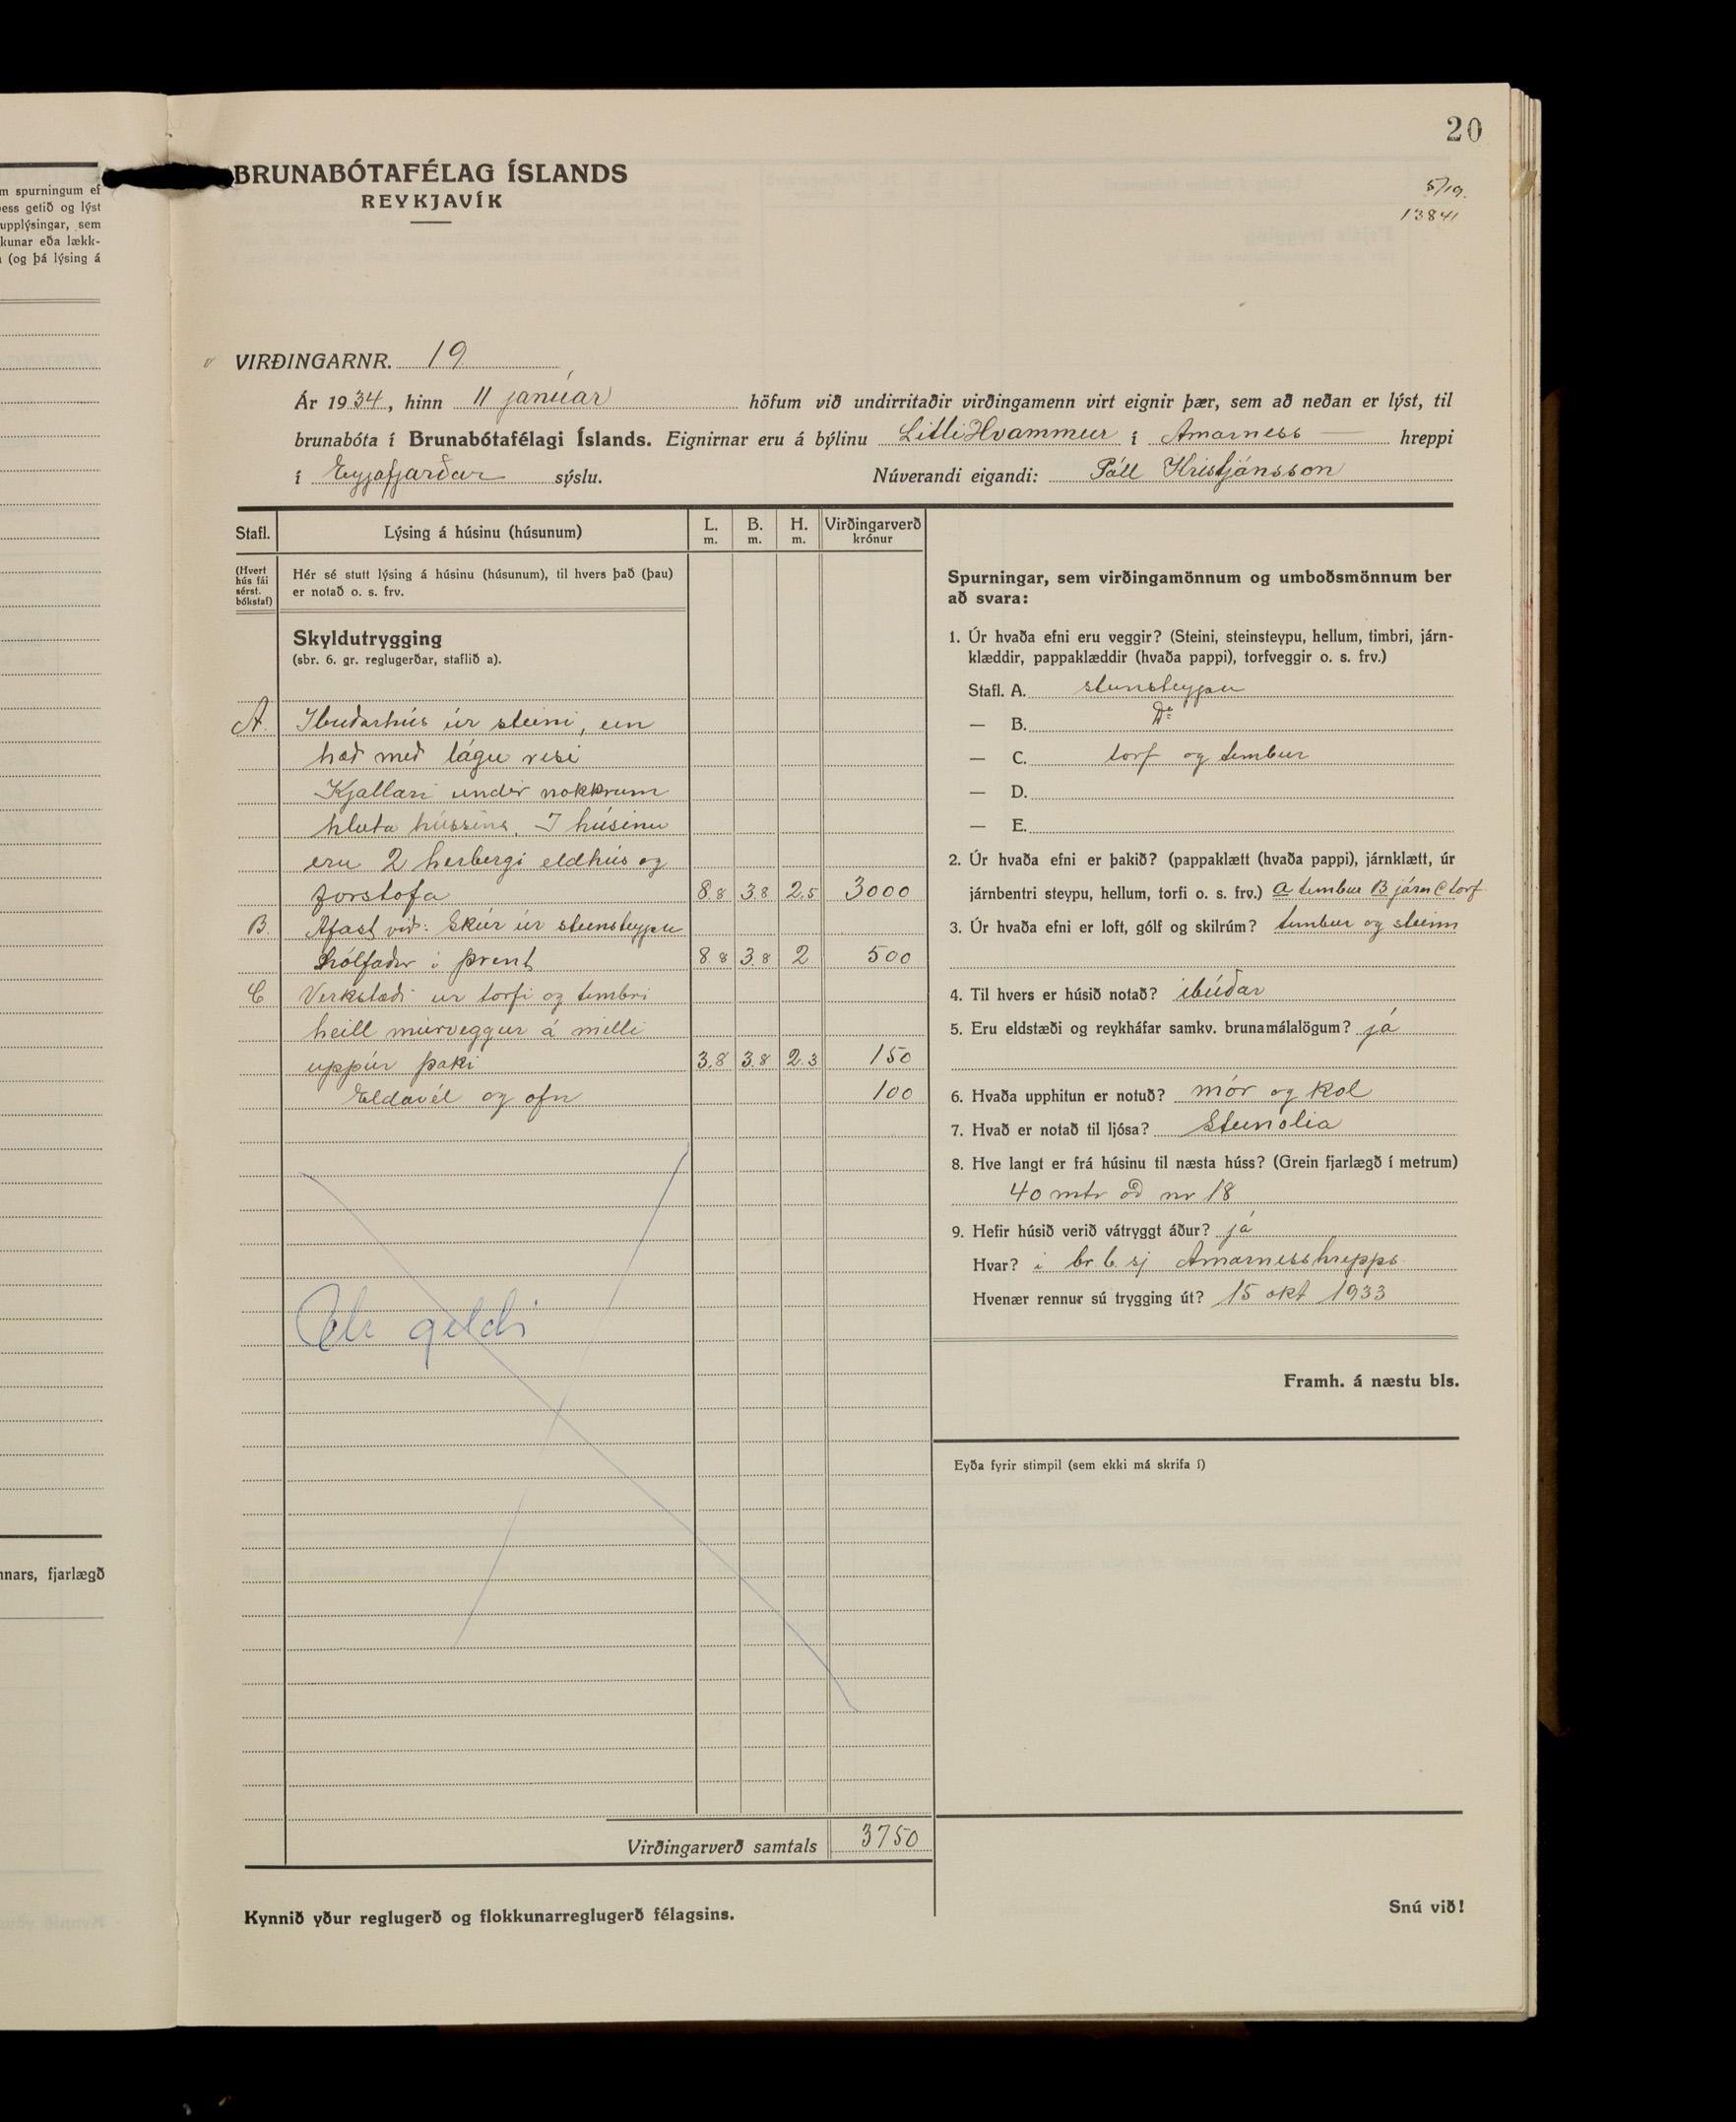 m spurningum ef
ess getið og lýst
upplýsingar, sem
kunar eða lækk-
(og þá lýsing á
nnars, fjarlægð
20
5/19.
13841
BRUNABÓTAFÉLAG ÍSLANDS
REYKJAVÍK
VIRÐINGARNR. 19
Ár 1934, hinn 11 janúar höfum við undirritaðir virðingamenn virt eignir þær, sem að neðan er lýst, til
brunabóta í Brunabótafélagi Íslands. Eignirnar eru á býlinu Litli Hvammur í Arnarness hreppi
í Eyjafjarðar sýslu. Núverandi eigandi: Páll Kristjánsson
Stafl. Lýsing á húsinu (húsunum) L. m. B. m. H. m. Virðingarverð krónur
(Hvert hús fái sérst. bókstaf)
Hér sé stutt lýsing á húsinu (húsunum), til hvers það (þau)
er notað o. s. frv.
Skyldutrygging
(sbr. 6. gr. reglugerðar, staflið a).
A. Ibuðarhús úr steini, ein
hæð með lágu risi
Kjallari undir nokkrum
hluta hússins. I húsinu
eru 2 herbergi eldhús og
forstofa 8.8 3.8 2.5 3000
B. Afast við: Skúr úr steinsteypu
hólfaður i þrent 8.8 3.8 2 500
C Verkstæði ur torfi og timbri
heill múrveggur á milli
uppúr þaki 3.8 3.8 2.3 150
Eldavél og ofn 100
gildi
Virðingarverð samtals 3750
Kynnið yður reglugerð og flokkunarreglugerð félagsins.
Spurningar, sem virðingamönnum og umboðsmönnum ber
að svara:
1. Úr hvaða efni eru veggir? (Steini, steinsteypu, hellum, timbri, járn-
klæddir, pappaklæddir (hvaða pappi), torfveggir o. s. frv.)
Stafl. A. steinsteypu
— B. Do
— C. torf og timbur
— D.
— E.
2. Úr hvaða efni er þakið? (pappaklætt (hvaða pappi), járnklætt, úr
járnbentri steypu, hellum, torfi o. s. frv.) A timbur B járn C torf
3. Úr hvaða efni er loft, gólf og skilrúm? timbur og steinn
4. Til hvers er húsið notað? ibúðar
5. Eru eldstæði og reykháfar samkv. brunamálalögum? já
6. Hvaða upphitun er notuð? mór og kol
7. Hvað er notað til ljósa? Steinolia
8. Hve langt er frá húsinu til næsta húss? (Grein fjarlægð í metrum)
40 mtr að nr 18
9. Hefir húsið verið vátryggt áður? já
Hvar? i br. b. sj Arnarnesshrepps
Hvenær rennur sú trygging út? 15 okt 1933
Framh. á næstu bls.
Eyða fyrir stimpil (sem ekki má skrifa í)
Snú við!